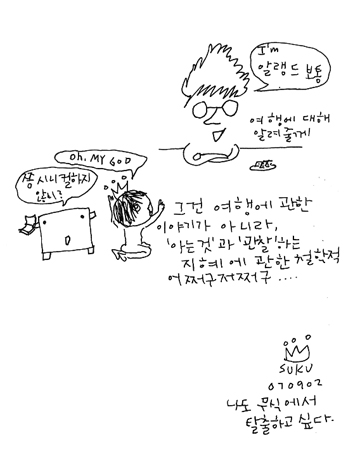 I'm
알랭 드 보통
여행에 대해
알려줄게
oh. MY GOD
쫌 시니컬하지
않니?
그건 여행에 관한
이야기가 아니라,
'아는것'과 '관찰'하는
지혜에 관한 철학적
어쩌구저쩌구 ....
SUKU
070902
나도 무식에서
탈출하고 싶다.